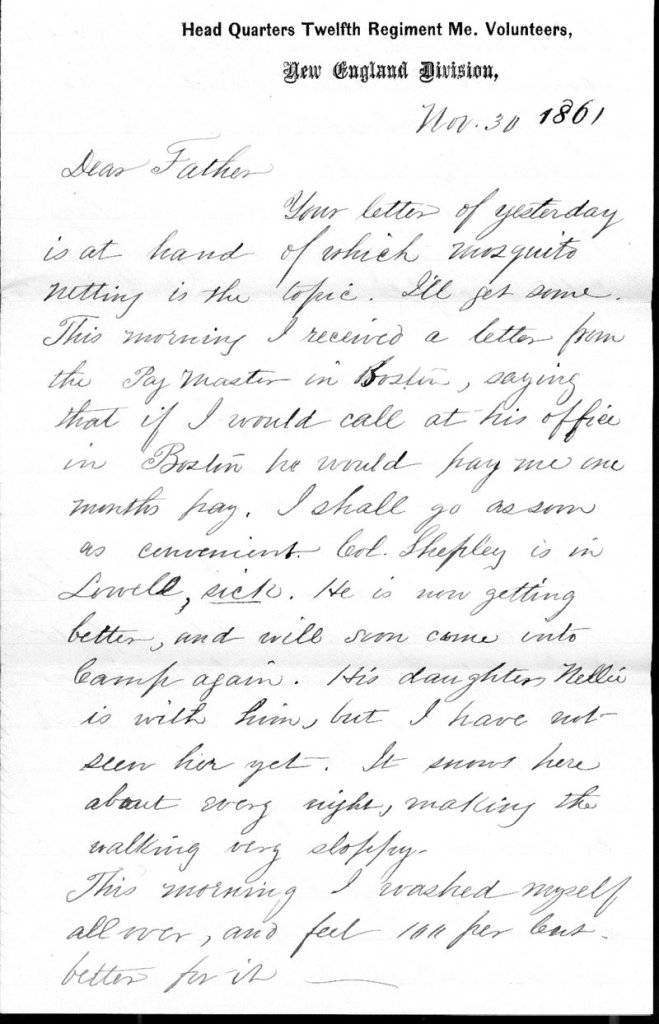 Head Quarters Twelfth Regiment Me. Volunteers,
New England Division,
Nov. 30 1861
Dear Father
Your letter of yesterday
is at hand of which mosquito
netting is the topic. I'll get some.
This morning I received a letter from
the Pay Master in Boston, saying
that if I would call at his office
in Boston he would pay me one
months pay. I shall go as soon
as convenient. Col. Shepley is in
Lowell, sick. He is now getting
better, and will soon come into
Camp again. His daughter, Nellie
is with him, but I have not
seen her yet. It snows here
about every night, making the
walking very sloppy.
This morning I washed myself
all over, and feel 100 per Cent.
better for it